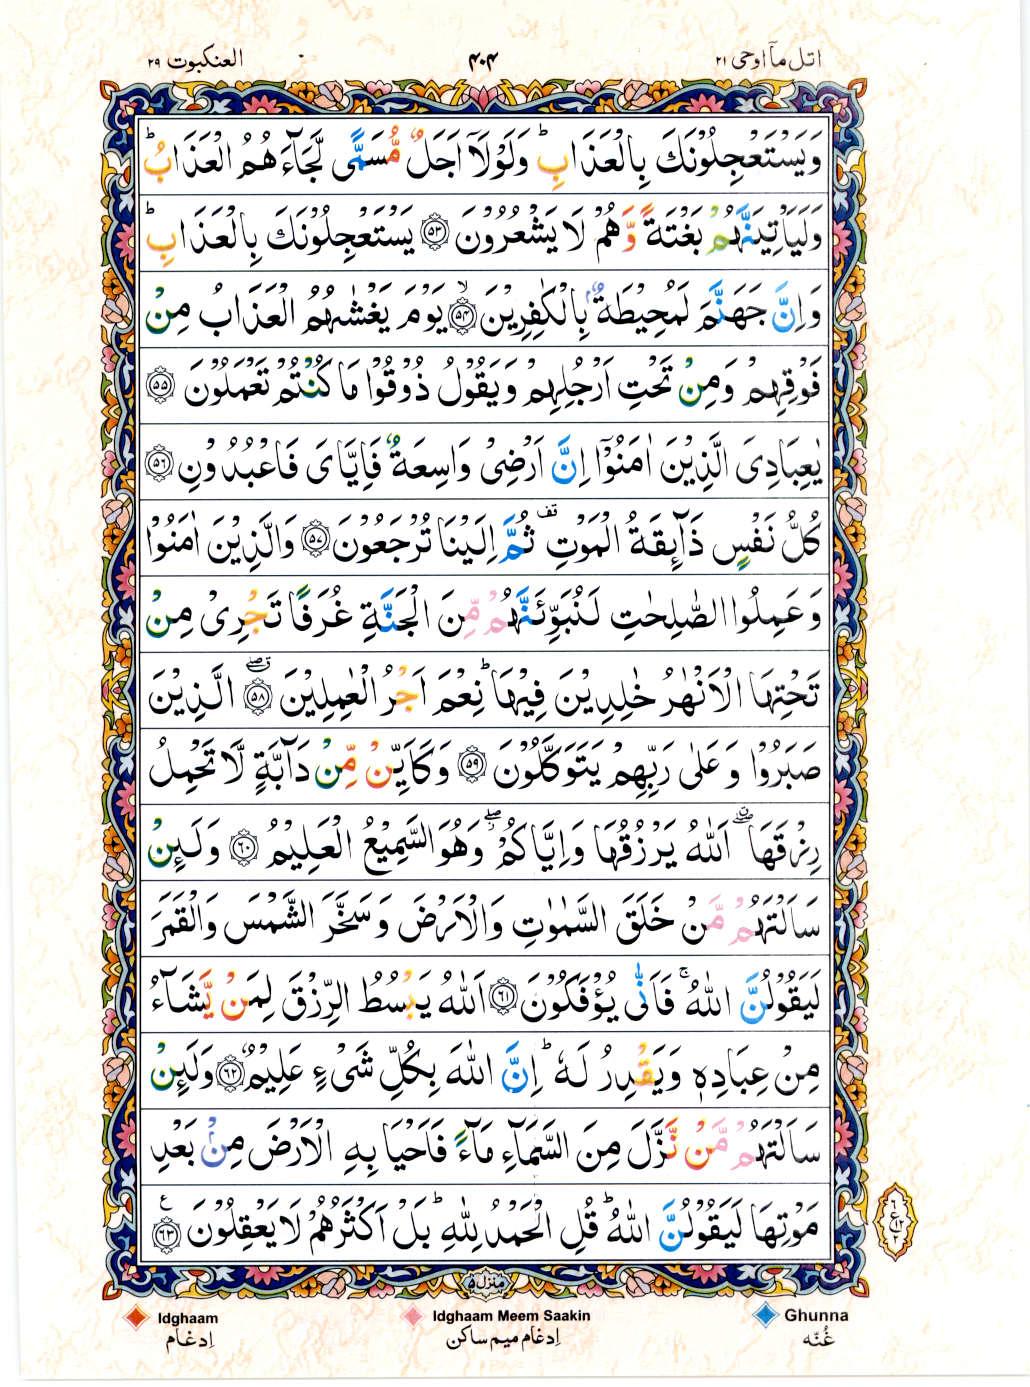 اتل مآ اوحی ۲۱
۴۰۴
العنكبوت ۲۹
وَيَسْتَعْجِلُوْنَكَ بِالْعَذَابِ ؕ وَلَوْلَاۤ اَجَلٌ مُّسَمًّى لَّجَآءَهُمُ الْعَذَابُ ؕ
وَلَيَاْتِيَنَّهُمْ بَغْتَةً وَّهُمْ لَا يَشْعُرُوْنَ ﴿۵۳﴾ يَسْتَعْجِلُوْنَكَ بِالْعَذَابِ ؕ
وَاِنَّ جَهَنَّمَ لَمُحِيْطَةٌۢ بِالْكٰفِرِيْنَ ۙ﴿۵۴﴾ يَوْمَ يَغْشٰىهُمُ الْعَذَابُ مِنْ
فَوْقِهِمْ وَمِنْ تَحْتِ اَرْجُلِهِمْ وَيَقُوْلُ ذُوْقُوْا مَا كُنْتُمْ تَعْمَلُوْنَ ﴿۵۵﴾
يٰعِبَادِىَ الَّذِيْنَ اٰمَنُوْۤا اِنَّ اَرْضِىْ وَاسِعَةٌ فَاِيَّاىَ فَاعْبُدُوْنِ ﴿۵۶﴾
كُلُّ نَفْسٍ ذَآئِقَةُ الْمَوْتِ قف ثُمَّ اِلَيْنَا تُرْجَعُوْنَ ﴿۵۷﴾ وَالَّذِيْنَ اٰمَنُوْا
وَعَمِلُوا الصّٰلِحٰتِ لَنُبَوِّئَنَّهُمْ مِّنَ الْجَنَّةِ غُرَفًا تَجْرِىْ مِنْ
تَحْتِهَا الْاَنْهٰرُ خٰلِدِيْنَ فِيْهَا ؕ نِعْمَ اَجْرُ الْعٰمِلِيْنَ ﴿۵۸﴾ الَّذِيْنَ
صَبَرُوْا وَعَلٰى رَبِّهِمْ يَتَوَكَّلُوْنَ ﴿۵۹﴾ وَكَاَيِّنْ مِّنْ دَآبَّةٍ لَّا تَحْمِلُ
رِزْقَهَا اَللّٰهُ يَرْزُقُهَا وَاِيَّاكُمْ وَهُوَ السَّمِيْعُ الْعَلِيْمُ ﴿۶۰﴾ وَلَئِنْ
سَاَلْتَهُمْ مَّنْ خَلَقَ السَّمٰوٰتِ وَالْاَرْضَ وَسَخَّرَ الشَّمْسَ وَالْقَمَرَ
لَيَقُوْلُنَّ اللّٰهُ ۚ فَاَنّٰى يُؤْفَكُوْنَ ﴿۶۱﴾ اَللّٰهُ يَبْسُطُ الرِّزْقَ لِمَنْ يَّشَآءُ
مِنْ عِبَادِهٖ وَيَقْدِرُ لَهٗ ؕ اِنَّ اللّٰهَ بِكُلِّ شَىْءٍ عَلِيْمٌ ﴿۶۲﴾ وَلَئِنْ
سَاَلْتَهُمْ مَّنْ نَّزَّلَ مِنَ السَّمَآءِ مَآءً فَاَحْيَا بِهِ الْاَرْضَ مِنْۢ بَعْدِ
مَوْتِهَا لَيَقُوْلُنَّ اللّٰهُ ؕ قُلِ الْحَمْدُ لِلّٰهِ ؕ بَلْ اَكْثَرُهُمْ لَا يَعْقِلُوْنَ ﴿۶۳﴾ ع
منزل ۵
Ghunna
Idghaam Meem Saakin
Idghaam
غُنّه
اِدغَام میم ساکن
اِدغَام